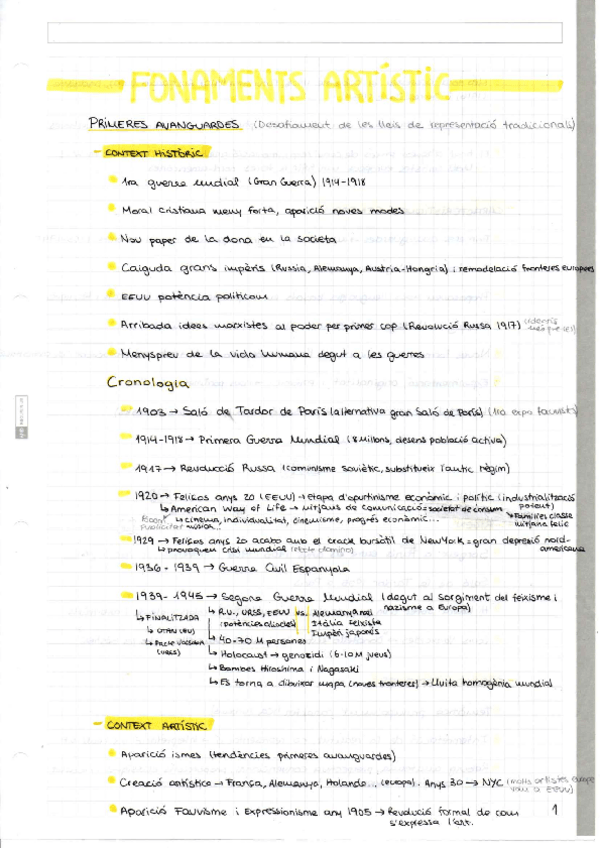 FONAMENTS ARTÍSTIC
PRIMERES AVANGUARDES (Desafiament de les lleis de representació tradicionals)
- CONTEXT HISTÒRIC
1ra guerra Mundial (Gran Guerra) 1914-1918
Moral cristiana meny forta, aparició noves modes
Nou paper de la dona en la societa
Caiguda grans imperis (Russia, Alemanya, Austria-Hongria) i remodelació fronteres europees
EEUU potència políticom
Arribada idees marxistes al poder per primer cop (Revolució Russa 1917)
Menyspreu de la vida humana degut a les guerres
Cronologia
1903 → Saló de Tardor de París (alternativa gran Saló de París) (1ra expo fauvista)
1914-1918 → Primera Guerra Mundial (8 Milions, desens població activa)
1917 → Revolució Russa (comunisme soviètic, substitueix l'antic règim)
1920 → Feliços anys 20 (EEUU) → Etapa d'oportinisme econòmic i polític (industrialització potent)
↳ American Way of Life → mitjans de comunicació = societat de consum ↳ Famílies classe mitjana feliç
Publicitat ↳ cinema, individualitat, consumisme, progrés econòmic...
1929 → Feliços anys 20 acaba amb el crack bursàtil de NewYork = gran depresió nord-americana
↳ provoquem crisi mundial (efecte domino)
1936 - 1939 → Guerra Civil Espanyola
1939 - 1945 → Segona Guerra Mundial (degut al sorgiment del feixisme i nazisme a Europa)
↳ FINALITZADA ↳ R.U., URSS, EEUU (potències aliades) vs. Alemanya nazi Itàlia feixista Imperi japonés
↳ OTAN (EEUU)
↳ Pacte Varsòvia (URSS)
↳ 40-70 M persones
↳ Holocaust → genocidi (6-10M jueus)
↳ Bombes Hiroshima i Nagasaki
↳ Es torna a dibuixar mapa (noves fronteres) → Lluita homogènia mundial
- CONTEXT ARTÍSTIC
Aparició ismes (tendències primeres avanguardes)
Creació artística → França, Alemanya, Holanda... (europa). Anys 30 → NYC (molts artistes europe van a EEUU)
Aparició Fauvisme i Expressionisme any 1905 → Revolució formal de com s'expressa l'art.
1